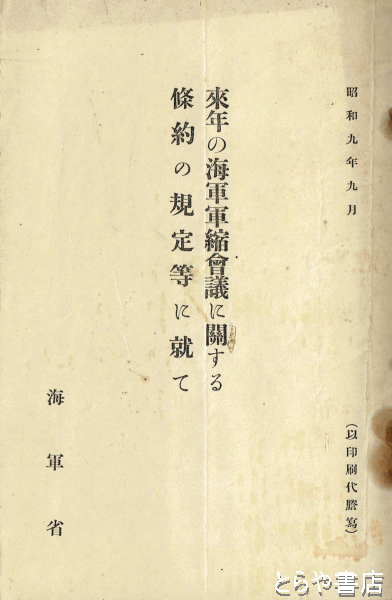 昭和九年九月
(以印刷代謄寫)
來年の海軍軍縮會議に關する
條約の規定等に就て
海軍省
とらや書店